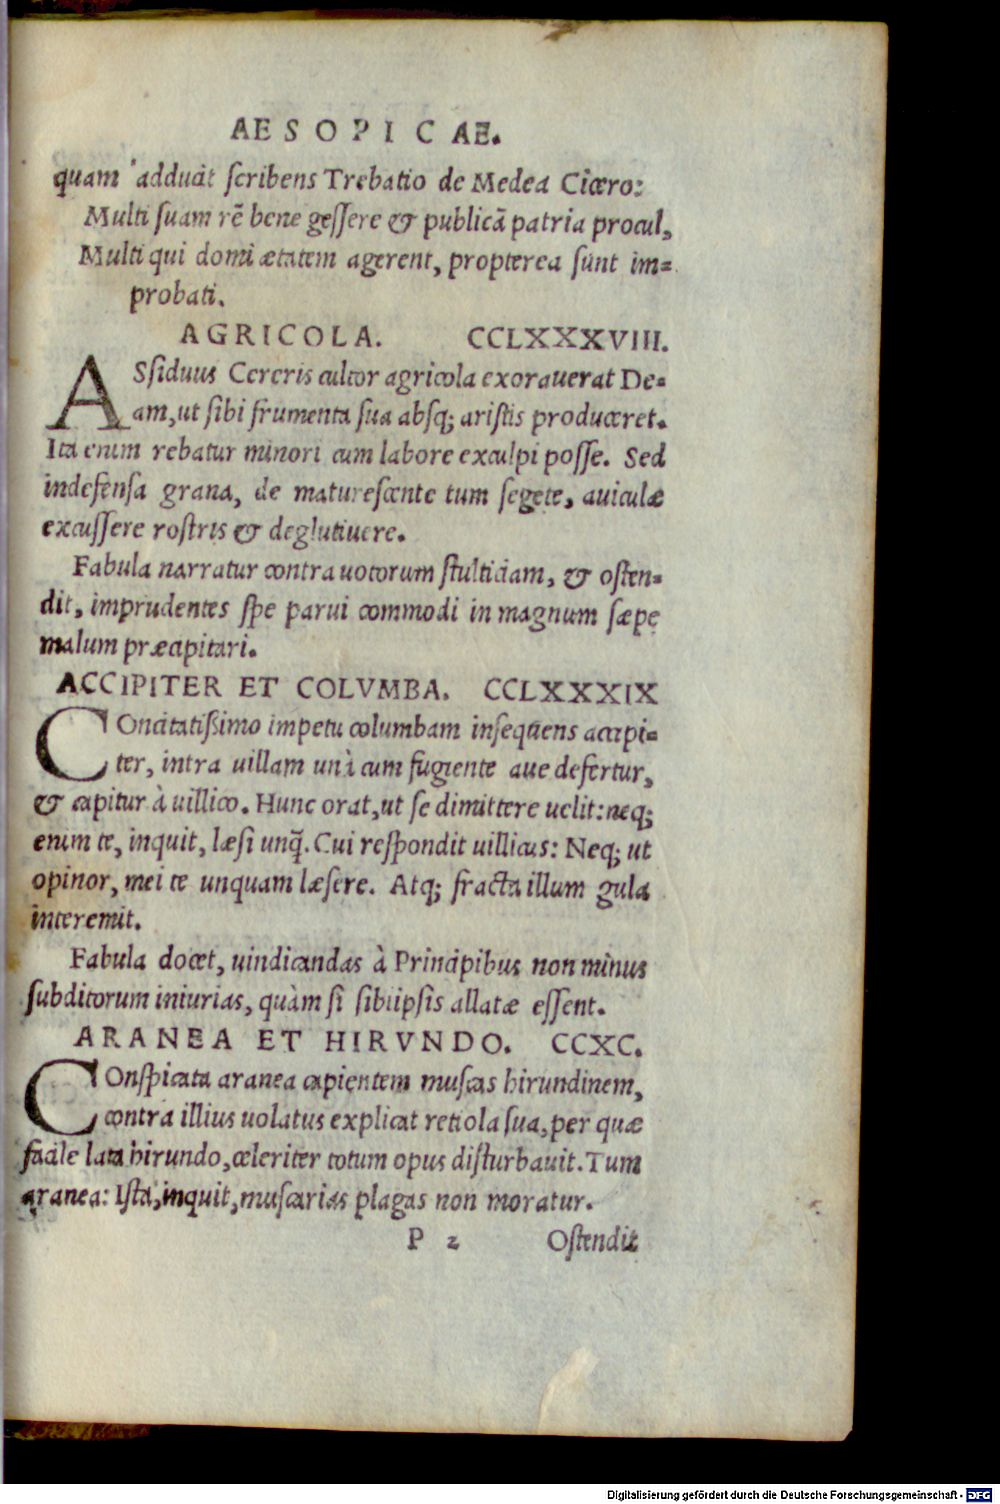 AESOPICAE.
quam adducit scribens Trebatio de Medea Cicero:
Multi suam rē bene gessere & publicā patria procul,
Multi qui domi ætatem agerent, propterea sunt im=
probati.
AGRICOLA. CCLXXXVIII.
ASsiduus Cereris cultor agricola exorauerat De=
am, ut sibi frumenta sua absq; aristis produceret.
Ita enim rebatur minori cum labore exculpi posse. Sed
indefensa grana, de maturescente tum segete, auiculæ
excussere rostris & deglutiuere.
Fabula narratur contra uotorum stulticiam, & osten=
dit, imprudentes spe parui commodi in magnum sæpe
malum præcipitari.
ACCIPITER ET COLVMBA. CCLXXXIX
COncitatißimo impetu columbam insequens accipi=
ter, intra uillam unà cum fugiente aue defertur,
& capitur à uillico. Hunc orat, ut se dimittere uelit: neq;
enim te, inquit, læsi unq̃. Cui respondit uillicus: Neq; ut
opinor, mei te unquam læsere. Atq; fracta illum gula
interemit.
Fabula docet, uindicandas à Principibus non minus
subditorum iniurias, quàm si sibiipsis allatæ essent.
ARANEA ET HIRVNDO. CCXC.
COnspicata aranea capientem muscas hirundinem,
contra illius uolatus explicat retiola sua, per quæ
facile lata hirundo, celeriter totum opus disturbauit. Tum
aranea: Ista, inquit, muscarias plagas non moratur.
P 2 Ostendit
Digitalisierung gefördert durch die Deutsche Forschungsgemeinschaft - DFG